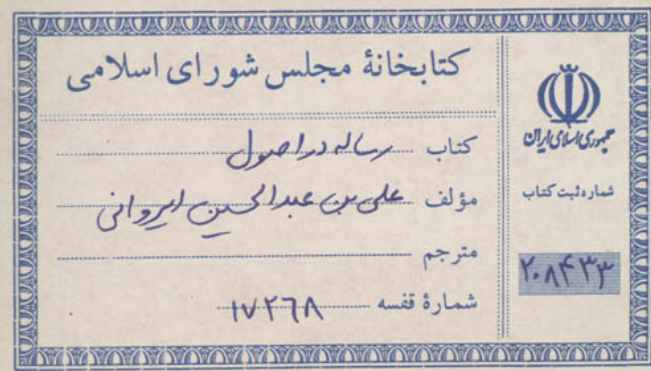 کتابخانهٔ مجلس شورای اسلامی
کتاب رساله در اصول
مؤلف علی بن عبدالحسین ایروانی
مترجم
شمارهٔ قفسه ۱۷۲۶۸
جمهوری اسلامی ایران
شماره ثبت کتاب
۲۰۸۴۳۳